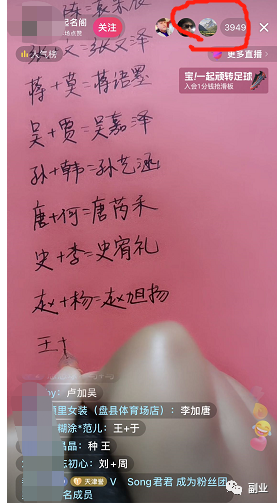 起名阁
场点赞
关注
3949
人气榜
更多直播
宝/一起顽转足球
入会1分钱抢滑板
蒋+莫=蒋语墨
吴+贾=吴嘉泽
孙+韩=孙艺涵
唐+何=唐芮禾
史+李=史宥礼
赵+杨=赵旭扬
王+
卢加吴
里女装（盘县体育场店）：李加唐
糊涂*范儿：王+于
晶：种 王
忘初心：刘+周
天津爱 V Song君君 成为粉丝团
名成员
副业